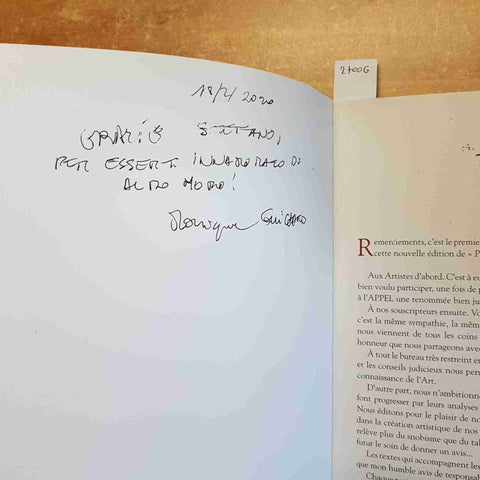 2700G
18/4/2020
GRAZIE STEFANO,
PER ESSERTI INNAMORATO DI
ALDO MORO!
Monique GUICHARD
Remerciements, c'est le premie
cette nouvelle édition de « P
Aux Artistes d'abord. C'est à eu
bien voulu participer, une fois de p
à l'APPEL une renommée bien ju
À nos souscripteurs ensuite. Vo
c'est la même sympathie, la mêm
nous viennent de tous les coins
honneur que nous partageons avec
À tout le bureau très restreint e
et les conseils judicieux nous perm
connaissance de l'Art.
D'autre part, nous n'ambitionne
font progresser par leurs analyses
Nous éditons pour le plaisir de no
dans la création artistique de nos
relève plus du snobisme que du tal
futur le soin de donner un avis...
Les textes qui accompagnent les
que mon humble avis de responsab
Chaque